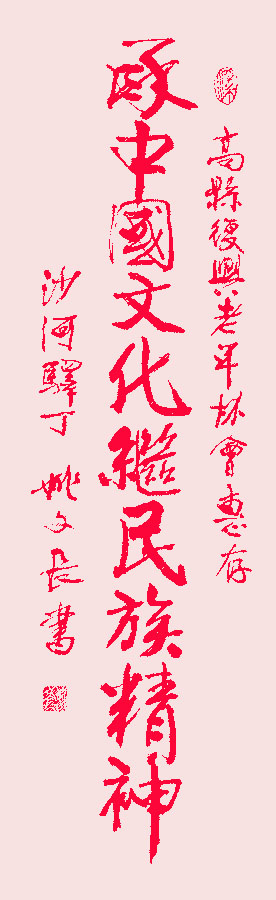 高縣復興老年体會惠存
承中國文化繼民族精神
沙河驛丁 姚文長書